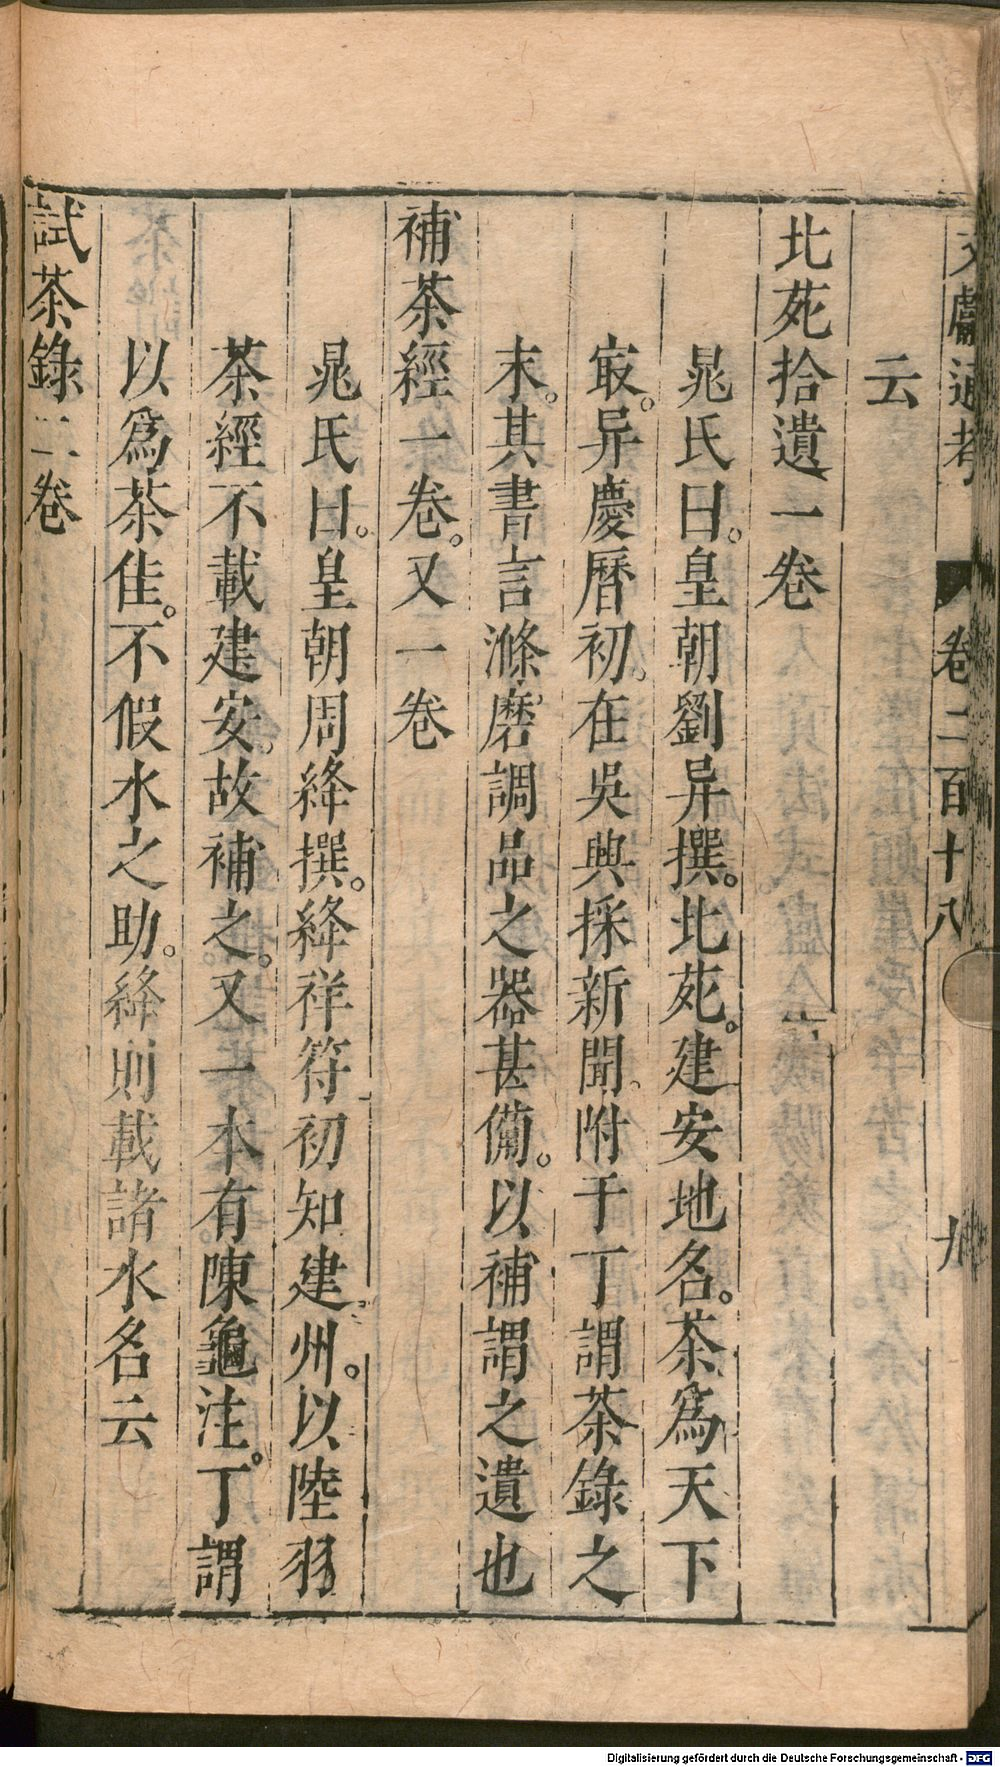 文獻通考 卷二百十八 九
云
北苑拾遺一卷
晁氏曰。皇朝劉异撰。北苑。建安地名。茶爲天下
㝡。异慶曆初。在吳興採新聞。附于丁謂茶錄之
末。其書言滌磨調品之器甚僃。以補謂之遺也
補茶經一卷。又一卷
晁氏曰。皇朝周絳撰。絳祥符初知建州。以陸羽
茶經不載建安。故補之。又一本有陳龜注。丁謂
以爲茶佳。不假水之助。絳則載諸水名云
試茶錄二卷
Digitalisierung gefördert durch die Deutsche Forschungsgemeinschaft - DFG